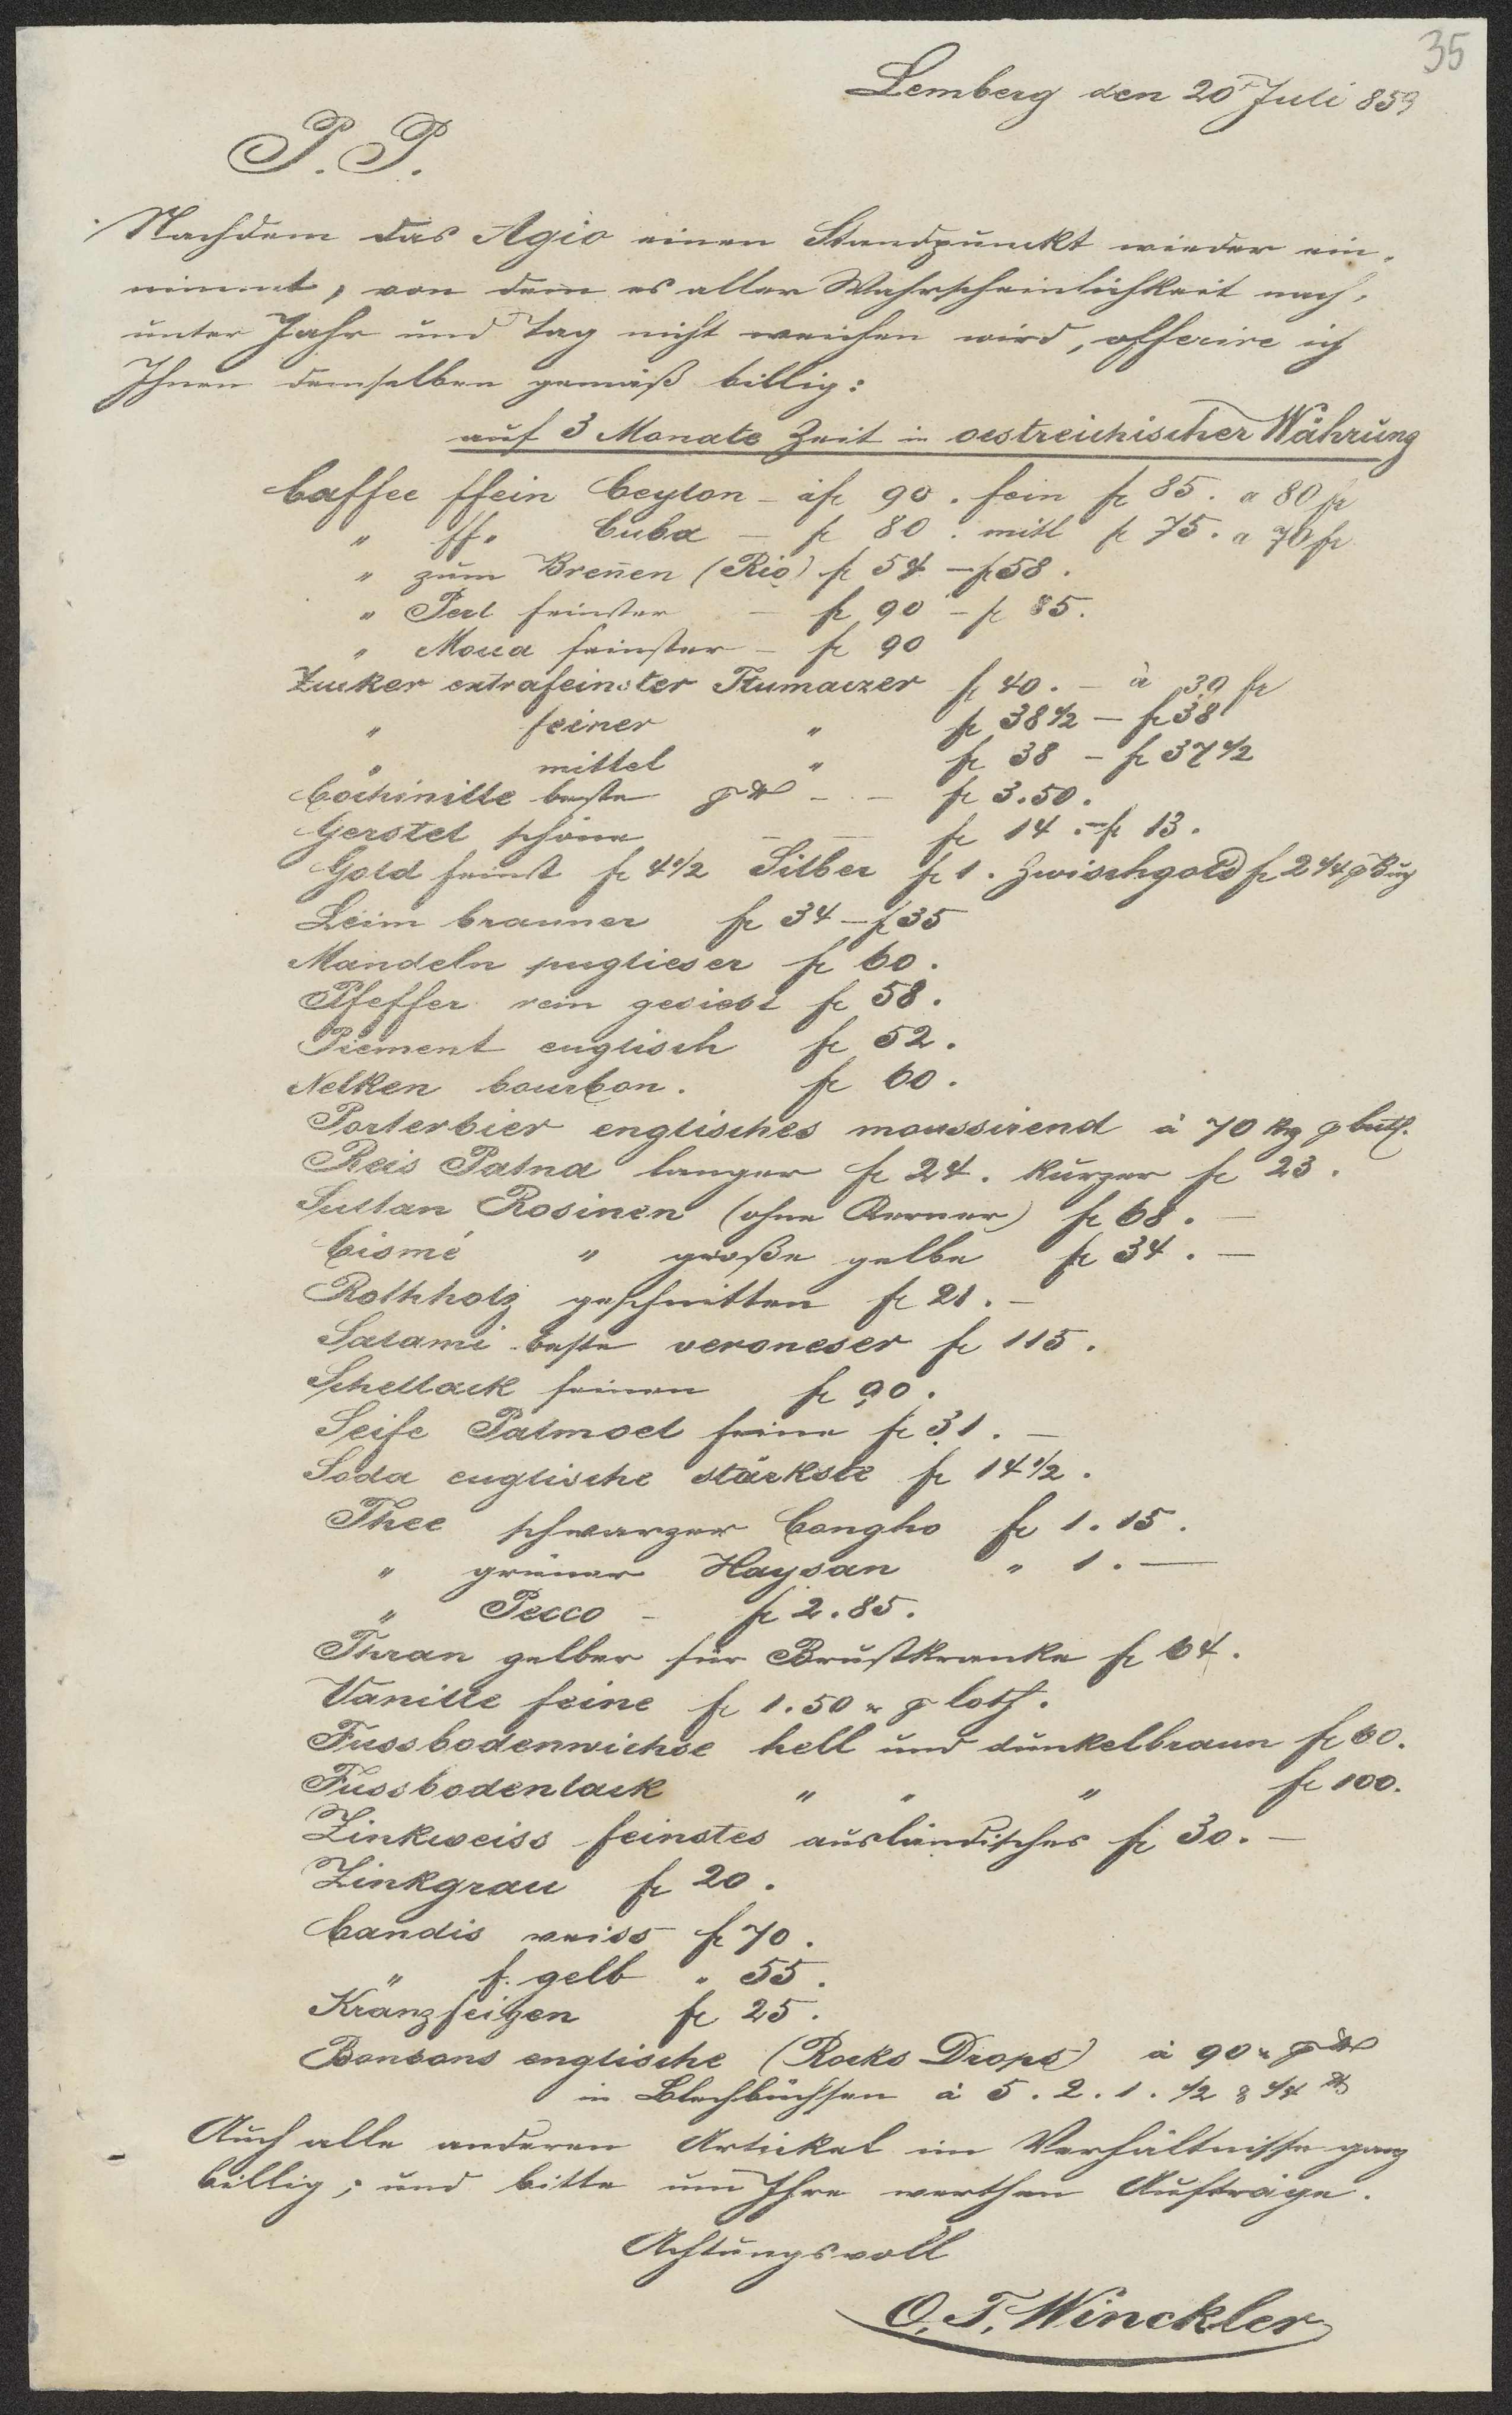 35
Lemberg den 20t Juli 859
P. P.
Nachdem das Agio einen Standpunckt wieder ein-
nimmt, von dem es aller Wahrscheinlichkeit nach,
unter Jahr und Tag nicht weichen wird, offerire ich
Ihnen demselben gemäß billig:
auf 3 Monate Zeit in oestreichischer Währung
Caffee ffein Ceylon - à fr 90. fein fr 85. a 80 fr
" ff. Cuba - fr 80. mitl fr 75. a 70 fr
" zum Breñen (Rio) fr 54 - fr 58.
" Perl feinster - fr 90 - fr 85.
" Mocca feinster - fr 90
Zucker extrafeinster Tlumaczer fr 40. - à 39 fr
" feiner " fr 38 1/2 - fr 38
" mittel " fr 38 - fr 37 1/2
Cochinille beste p ℔ - - fr 3.50.
Gerstel schöne - - fr 14. - fr 13.
Gold feinst fr 4 1/2 Silber fr 1. Zwischgold fr 2 1/4 p
Leim brauner fr 34 - fr 35
Mandeln puglieser fr 60.
Pfeffer rein gesiebt fr 58.
Piement englisch fr 52.
Nelken bourbon. fr 60.
Porterbier englisches moussirend à 70 p
Reis Patna langer fr 24. kurzer fr 23.
Sultan Rosinen (ohne Kerner) fr 68. -
Cismé " große gelbe fr 34. -
Rothholz geschnitten fr 21. -
Salami beste veroneser fr 115.
Schellack feinen fr 90.
Seife Palmoel feine fr 31. -
Soda englische stärkste fr 14 1/2.
Thee schwarzer Congho fr 1.15.
" grüner Haysan " 1. -
" Pecco - fr 2.85.
Thran gelber für Brustkranke fr 64.
Vanille feine fr 1.50 p loth.
Fussbodenwichse hell und dunkelbraun fr 60.
Fussbodenlack " " " fr 100.
Zinkweiss feinstes ausländisches fr 30. -
Zinkgrau fr 20.
Candis weiss fr 70.
" f. gelb " 55.
Kranzfeigen fr 25.
Bonbons englische (Rocks Drops) à 90 p ℔
in Blechbüchsen à 5. 2. 1. 1/2 & 1/4 ℔
Auch alle anderen Artickel im Verhältnisse ganz
billig; und bitte um Ihre werthen Aufträge.
Achtungsvoll
O. T. Winckler